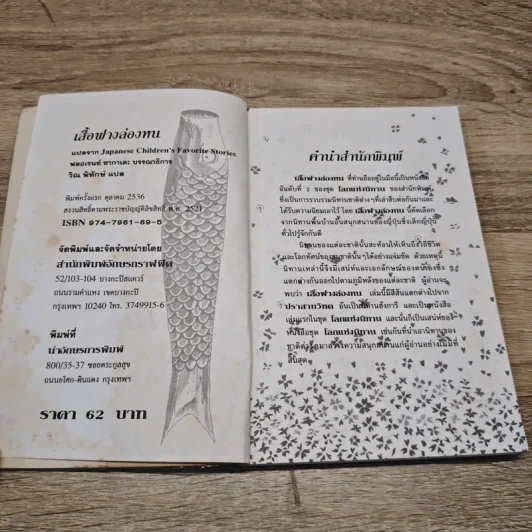 เสื้อฟางล่องหน
แปลจาก Japanese Children's Favorite Stories
ฟลอเรนซ์ ซากาเดะ บรรณาธิการ
วิณ พิทักษ์ แปล
พิมพ์ครั้งแรก ตุลาคม 2536
สงวนสิทธิ์ตามพระราชบัญญัติลิขสิทธิ์ พ.ศ. 2521
ISBN 974-7961-69-5
จัดพิมพ์และจัดจำหน่ายโดย
สำนักพิมพ์อักษรกราฟฟิค
52/103-104 บางกะปิสแควร์
ถนนรามคำแหง เขตบางกะปิ
กรุงเทพฯ 10240 โทร. 3749915-6
พิมพ์ที่
นำอักษรการพิมพ์
800/35-37 ซอยตระกูลสุข
ถนนอโศก-ดินแดง กรุงเทพฯ
ราคา 62 บาท
คำนำสำนักพิมพ์
เสื้อฟางล่องหน ที่ท่านถืออยู่ในมือนี้เป็นหนังสือ
อันดับที่ 3 ของชุด โลกแห่งนิทาน ของสำนักพิมพ์
ซึ่งเป็นการรวบรวมนิทานชาติต่างๆที่เล่าสืบต่อกันมาและ
ได้รับความนิยมเอาไว้ โดย เสื้อฟางล่องหน นี้คัดเลือก
จากนิทานพื้นบ้านอันสนุกสนานของญี่ปุ่นซึ่งเด็กญี่ปุ่น
ทั่วไปรู้จักกันดี
นิทานของแต่ละชาตินั้นสะท้อนให้เห็นถึงวิถีชีวิต
และโลกทัศน์ของชาตินั้นๆได้อย่างแจ่มชัด ด้วยเหตุนี้
นิทานเหล่านี้จึงมีเสน่ห์และเอกลักษณ์ของตนเองซึ่ง
แตกต่างกันออกไปตามภูมิหลังของแต่ละชาติ ผู้อ่านจะ
พบว่า เสื้อฟางล่องหน เล่มนี้มีสีสันแตกต่างไปจาก
ปราสาทวิกล อันเป็นนิทานฮังการี และเป็นหนังสือ
เล่มแรกในชุด โลกแห่งนิทาน และนั่นก็เป็นเสน่ห์ของ
หนังสือชุด โลกแห่งนิทาน เช่นกันที่นำเอานิทานของ
ชาติต่างๆมาสร้างความสนุกสนานแก่ผู้อ่านอย่างไม่มีที่
สิ้นสุด